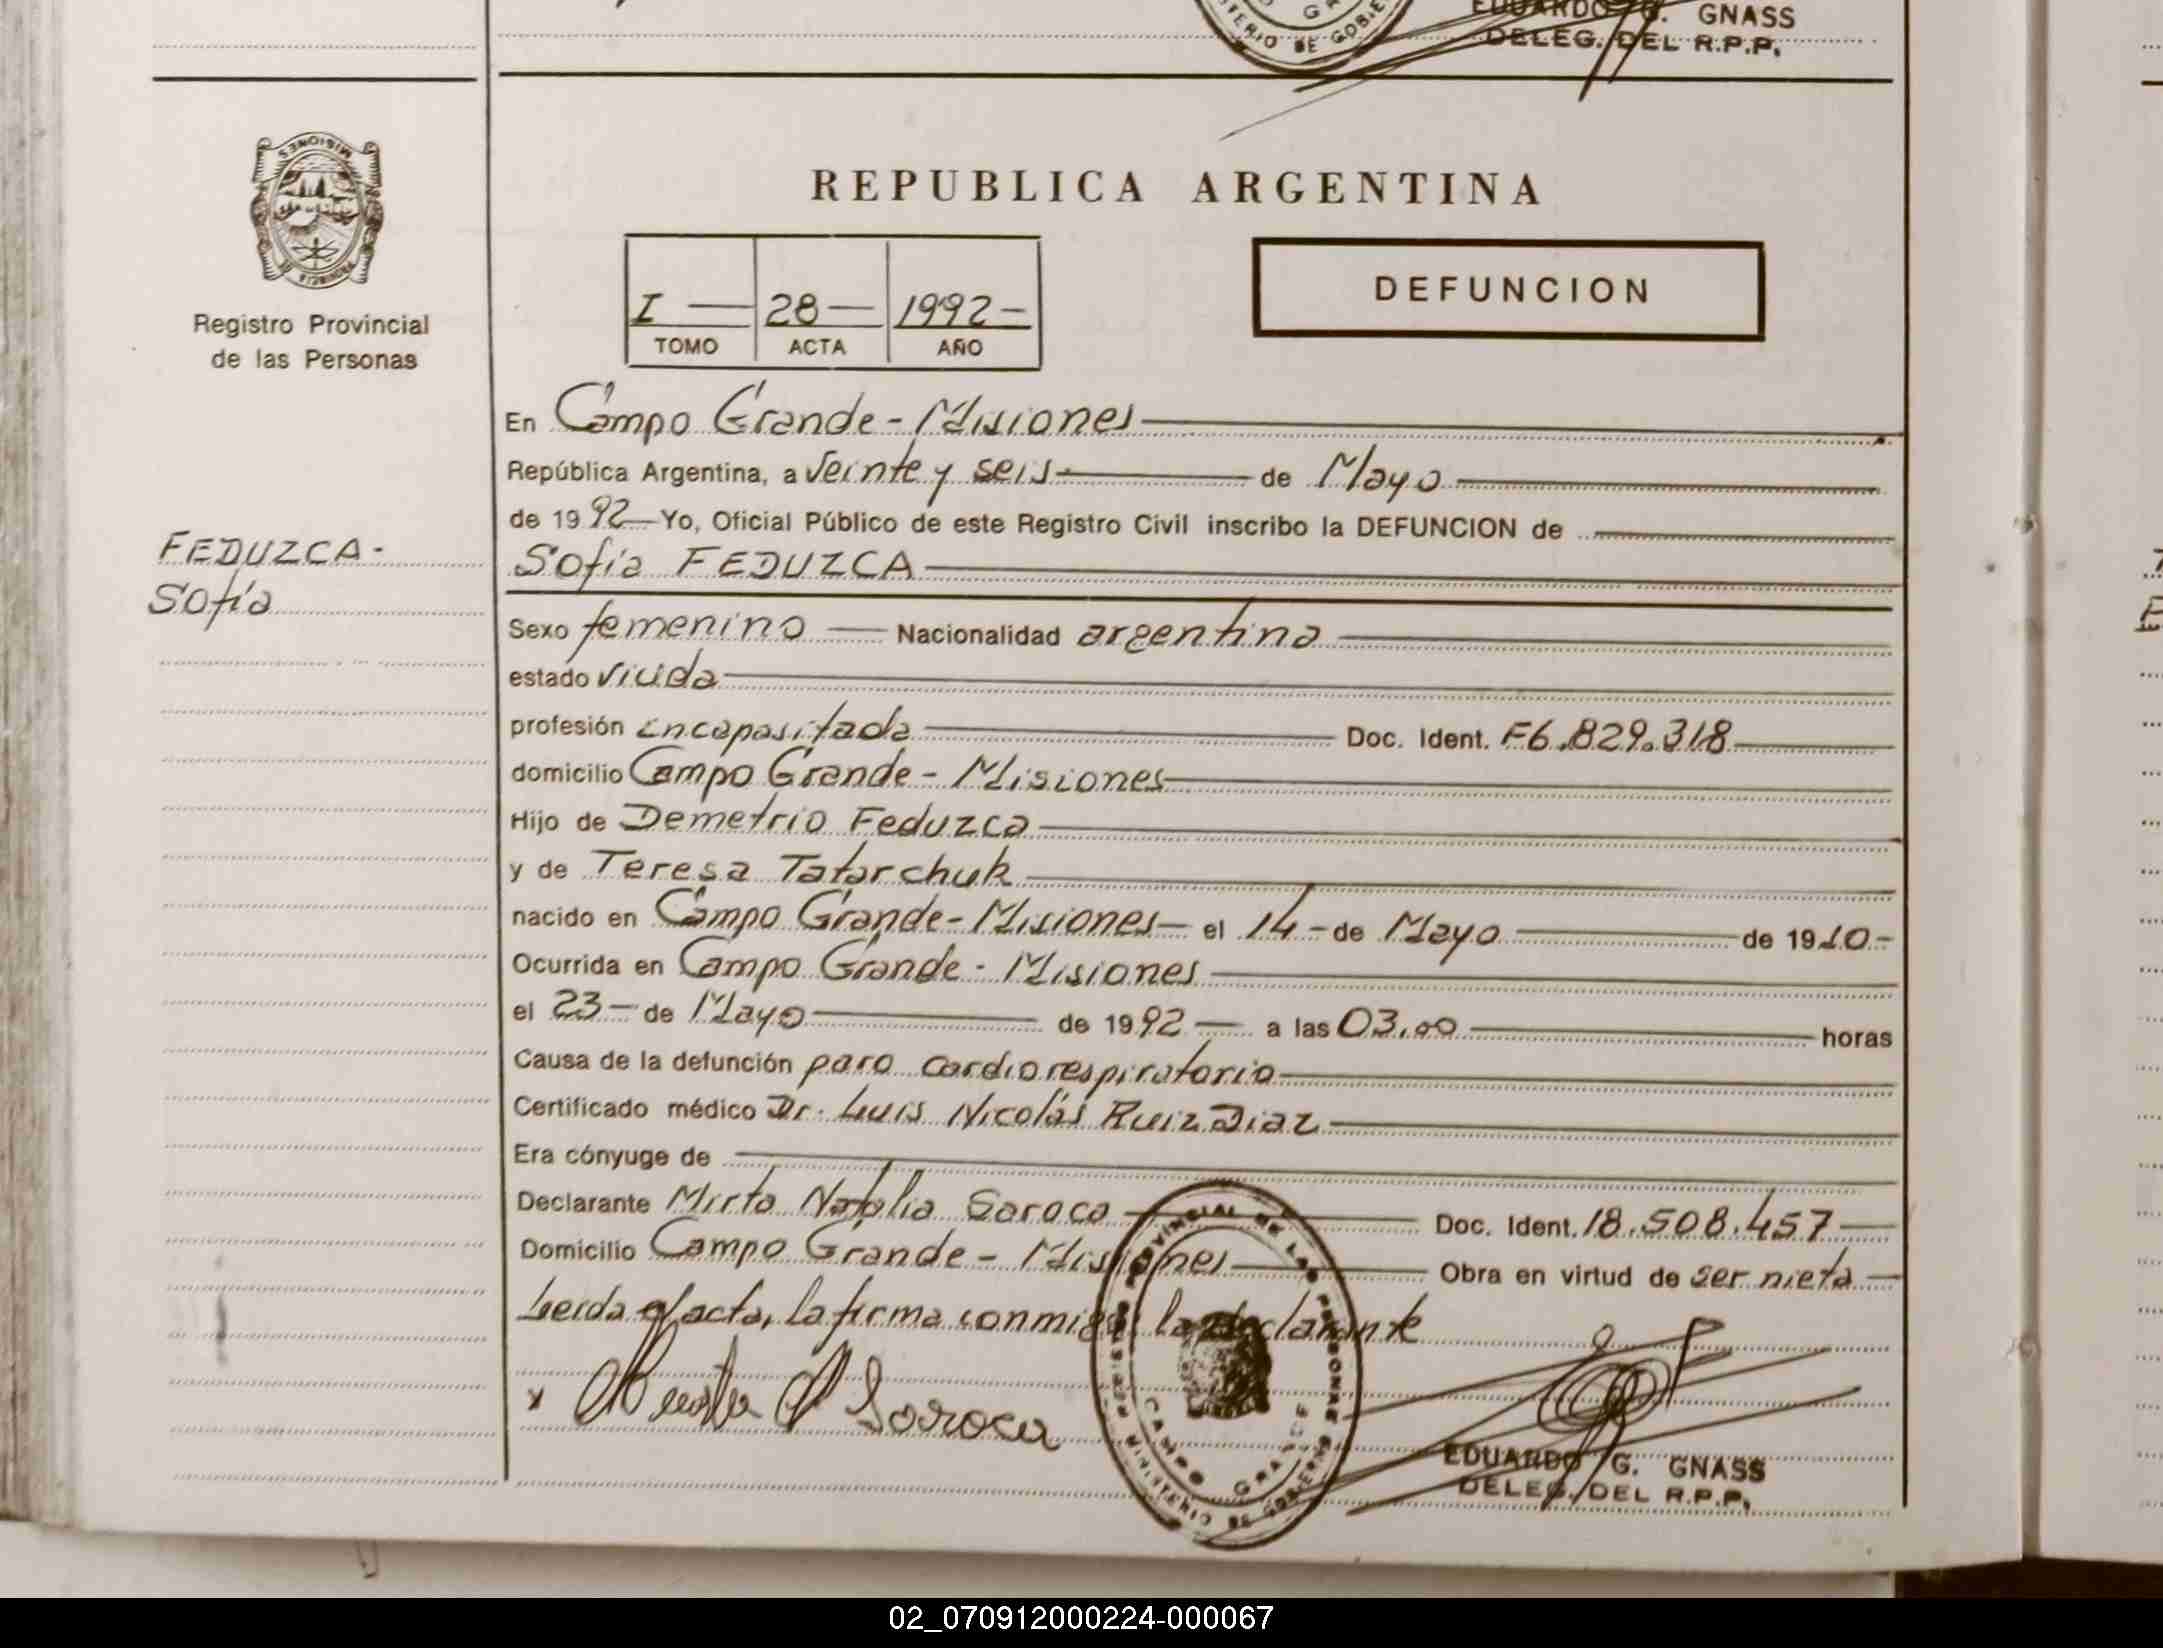 EDUARDO G. GNASS
DELEG. DEL R.P.P.
MISIONES
Registro Provincial
de las Personas
REPUBLICA ARGENTINA
I — 28 — 1992 -
TOMO ACTA AÑO
DEFUNCION
FEDUZCA -
Sofía
En Campo Grande - Misiones
República Argentina, a veinte y seis de Mayo
de 1992 Yo, Oficial Público de este Registro Civil inscribo la DEFUNCION de
Sofía FEDUZCA
Sexo femenino Nacionalidad argentina
estado viuda
profesión incapasitada Doc. Ident. F6.829.318
domicilio Campo Grande - Misiones
Hijo de Demetrio Feduzca
y de Teresa Tatarchuk
nacido en Campo Grande - Misiones — el 14 - de Mayo de 1910 -
Ocurrida en Campo Grande - Misiones
el 23 — de Mayo de 1992 — a las 03.00 horas
Causa de la defunción paro cardiorespiratorio
Certificado médico Dr. Luis Nicolás Ruiz Diaz
Era cónyuge de
Declarante Mirta Natalia Saroca Doc. Ident. 18.508.457
Domicilio Campo Grande - Misiones Obra en virtud de ser nieta
Leida el acta, la firma conmigo la declarante
x Mirta N Soroca
CAMPO GRANDE
MINISTERIO DE GOBIERNO
EDUARDO G. GNASS
DELEG. DEL R.P.P.
02_070912000224-000067